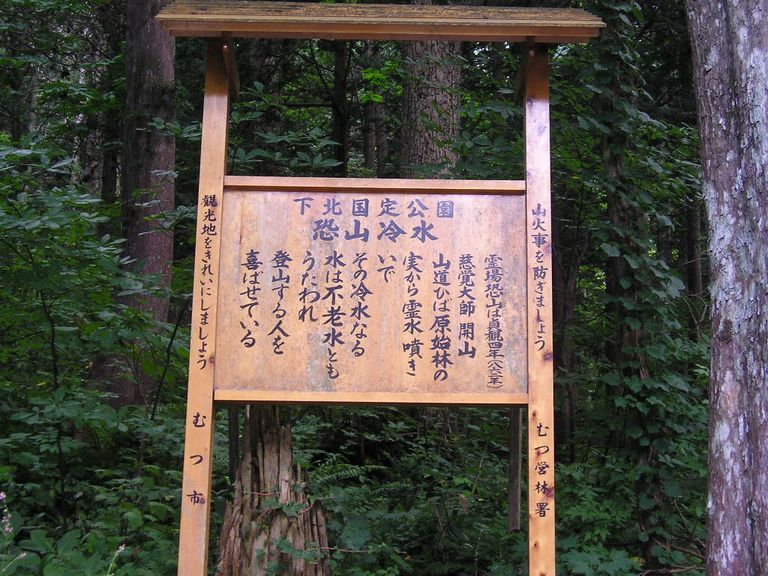 下北国定公園
恐山冷水
霊場恐山は貞観四年(八六二年)
慈覚大師 開山
山道ひば原始林の
実から霊水噴き
いで
その冷水なる
水は不老水とも
うたわれ
登山する人を
喜ばせている
山火事を防ぎましょう
むつ営林署
観光地をきれいにしましょう
むつ市